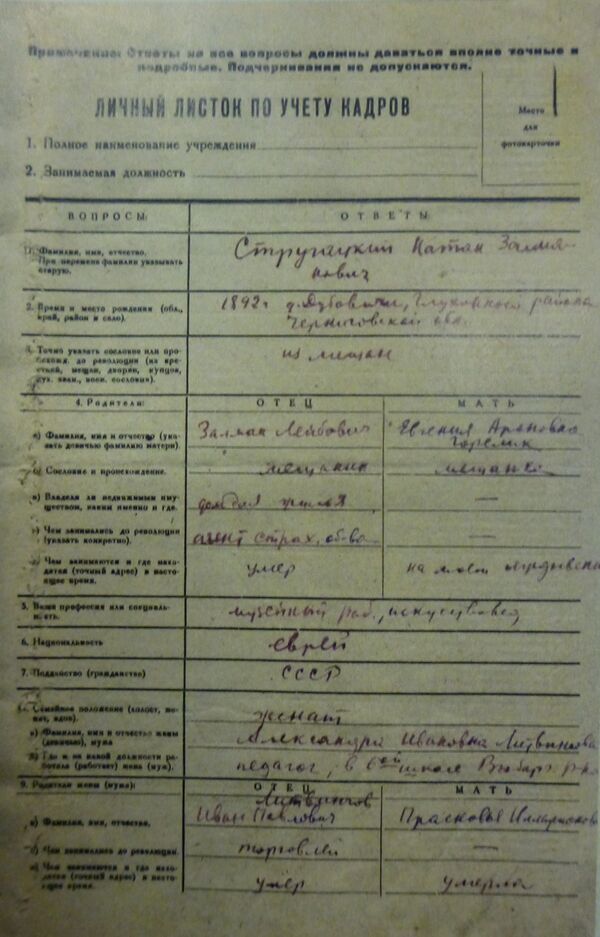 Примечание. Ответы на все вопросы должны даваться вполне точные и
подробные. Подчеркивания не допускаются.
ЛИЧНЫЙ ЛИСТОК ПО УЧЕТУ КАДРОВ
Место
для
фотокарточки
1. Полное наименование учреждения
2. Занимаемая должность
ВОПРОСЫ:
ОТВЕТЫ:
1. Фамилия, имя, отчество.
При перемене фамилии указывать
старую.
Стругацкий Натан Залма-
нович
2. Время и место рождения (обл.,
край, район и село).
1892 г д. Дубовичи, Глуховского района
Черниговской обл.
3. Точно указать сословие или про-
исхожд. до революции (из кре-
стьян, мещан, дворян, купцов,
дух. зван., воен. сословия).
из мещан
4. Родители:
ОТЕЦ
МАТЬ
а) Фамилия, имя и отчество (ука-
зать девичью фамилию матери).
Залман Лейбович
Евгения Ароновна
Горелик
б) Сословие и происхождение.
мещанин
мещанка
в) Владели ли недвижимым иму-
ществом, каким именно и где.
дом для жилья
—
г) Чем занимались до революции
(указать конкретно).
агент страх. об-ва
—
д) Чем занимаются и где нахо-
дятся (точный адрес) в настоя-
щее время.
умер
на моем иждивении
5. Ваша профессия или специаль-
ность.
музейный раб., искусствовед
6. Национальность
еврей
7. Подданство (гражданство)
СССР
8. Семейное положение (холост, же-
нат, вдов).
женат
а) Фамилия, имя и отчество жены
(девичью), мужа
Александра Ивановна Литвинчева
б) Где и на какой должности ра-
ботала (работает) жена (муж).
педагог, в 6ой школе Выборг. р-на
9. Родители жены (мужа):
ОТЕЦ
МАТЬ
а) Фамилия, имя, отчество.
Литвинчев
Иван Павлович
Прасковья Илларионовна
б) Чем занимались до революции.
торговлей
в) Чем занимаются и где нахо-
дятся (точный адрес) в настоя-
щее время.
умер
умерла